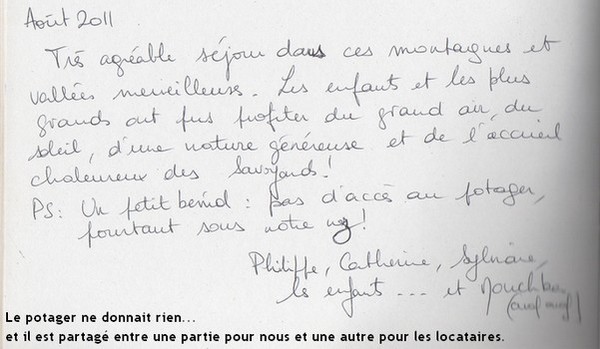 Août 2011
Très agréable séjour dans ces montagnes et
vallées merveilleuses. Les enfants et les plus
grands ont pus profiter du grand air, du
soleil, d'une nature généreuse et de l'accueil
chaleureux des Savoyards!
PS: Un petit bémol : pas d'accès au potager,
pourtant sous notre nez!
Philippe, Catherine, Sylviane,
les enfants ... et
(ouaf ouaf)
Le potager ne donnait rien...
et il est partagé entre une partie pour nous et une autre pour les locataires.